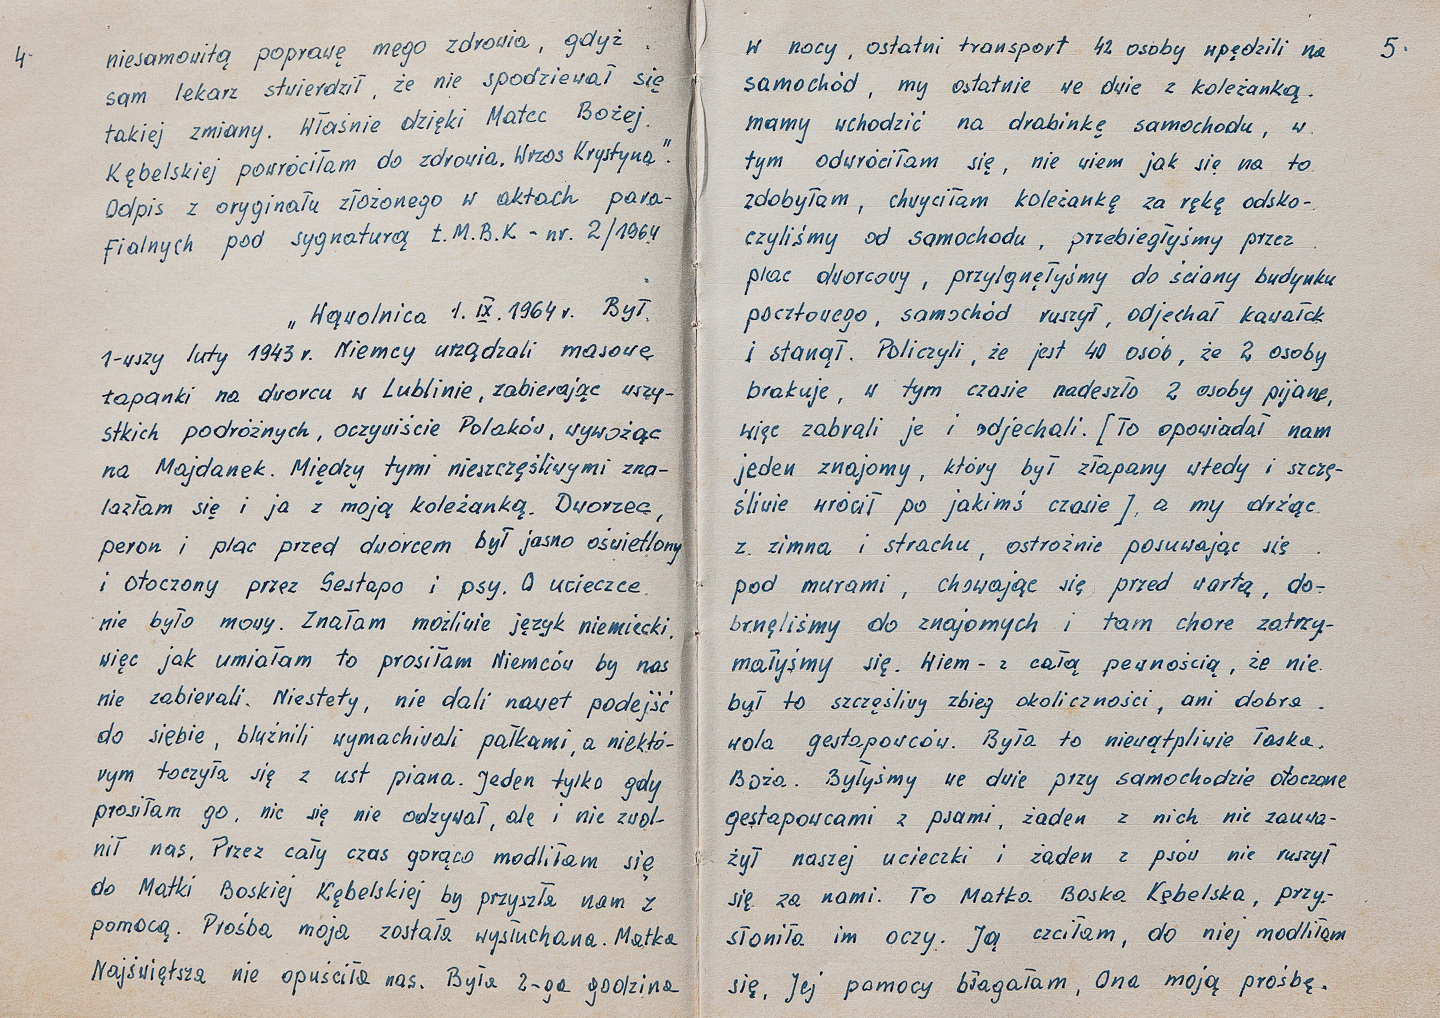 4.
niesamowitą poprawę mego zdrowia, gdyż
sam lekarz stwierdził, że nie spodziewał się
takiej zmiany. Właśnie dzięki Matce Bożej
Kębelskiej powróciłam do zdrowia. Wrzos Krystyna".
Odpis z oryginału złożonego w aktach para-
fialnych pod sygnaturą t.M.B.K - nr. 2/1964
„Wąwolnica 1. IX. 1964 r. Był
1-wszy luty 1943 r. Niemcy urządzali masowe
łapanki na dworcu w Lublinie, zabierając wszy-
stkich podróżnych, oczywiście Polaków, wywożąc
na Majdanek. Między tymi nieszczęśliwymi zna-
lazłam się i ja z moją koleżanką. Dworzec,
peron i plac przed dworcem był jasno oświetlony
i otoczony przez Gestapo i psy. O ucieczce
nie było mowy. Znałam możliwie język niemiecki,
więc jak umiałam to prosiłam Niemców by nas
nie zabierali. Niestety, nie dali nawet podejść
do siebie, bluźnili wymachiwali pałkami, a niektó-
rym toczyła się z ust piana. Jeden tylko gdy
prosiłam go, nic się nie odzywał, ale i nie zwol-
nił nas. Przez cały czas gorąco modliłam się
do Matki Boskiej Kębelskiej by przyszła nam z
pomocą. Prośba moja została wysłuchana. Matka
Najświętsza nie opuściła nas. Była 2-ga godzina
5.
w nocy, ostatni transport 42 osoby wpędzili na
samochód, my ostatnie we dwie z koleżanką.
mamy wchodzić na drabinkę samochodu, w
tym odwróciłam się, nie wiem jak się na to
zdobyłam, chwyciłam koleżankę za rękę odsko-
czyliśmy od samochodu, przebiegłyśmy przez
plac dworcowy, przylgnęłyśmy do ściany budynku
pocztowego, samochód ruszył, odjechał kawałek
i stanął. Policzyli, że jest 40 osób, że 2 osoby
brakuje, w tym czasie nadeszło 2 osoby pijane,
więc zabrali je i odjechali. [To opowiadał nam
jeden znajomy, który był złapany wtedy i szczę-
śliwie wrócił po jakimś czasie], a my drżąc
z zimna i strachu, ostrożnie posuwając się
pod murami, chowając się przed wartą, do-
brnęliśmy do znajomych i tam chore zatrzy-
małyśmy się. Wiem - z całą pewnością, że nie
był to szczęśliwy zbieg okoliczności, ani dobra
wola gestapowców. Była to niewątpliwie łaska
Boża. Byłyśmy we dwie przy samochodzie otoczone
gestapowcami z psami, żaden z nich nie zauwa-
żył naszej ucieczki i żaden z psów nie ruszył
się za nami. To Matka Boska Kębelska, przy-
słoniła im oczy. Ją czciłam, do niej modliłam
się, Jej pomocy błagałam, Ona moją prośbę.